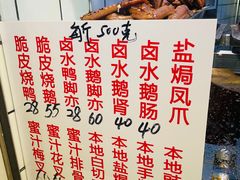 每斤500克
脆皮烧鸭 28
脆皮烧鹅 55
卤水鸭脚亦 28
卤水鹅脚亦 60
卤水鹅肾 40
卤水鹅肠 40
盐焗凤爪
蜜汁梅
蜜汁花叉
蜜汁排骨
本地白切
本地盐焗
本地手
本地